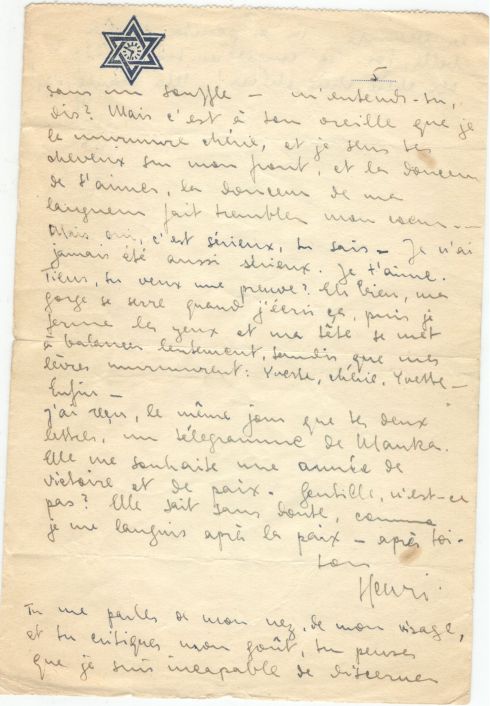 5
dans un souffle – m'entends-tu,
dis? Mais c'est à ton oreille que je
le murmure chérie, et je sens tes
cheveux sur mon front, et la douceur
de t'aimer, la douceur de ma
langueur fait trembler mon coeur...
Mais oui, c'est sérieux, tu sais – Je n'ai
jamais été aussi sérieux. Je t'aime.
Tiens, tu veux une preuve? Eh bien, ma
gorge se serre quand j'écris ça, puis je
ferme les yeux et ma tête se met
à balancer lentement, tandis que mes
lèvres murmurent: Yvette, chérie, Yvette –
Enfin –
J'ai reçu, le même jour que tes deux
lettres, un télégramme de
Elle me souhaite une année de
victoire et de paix. Gentille, n'est-ce
pas? Elle sait sans doute, comme
je me languis après la paix – après toi.
ton
Henri.
Tu me parles de mon nez, de mon visage,
et tu critiques mon goût, tu penses
que je suis incapable de discerner